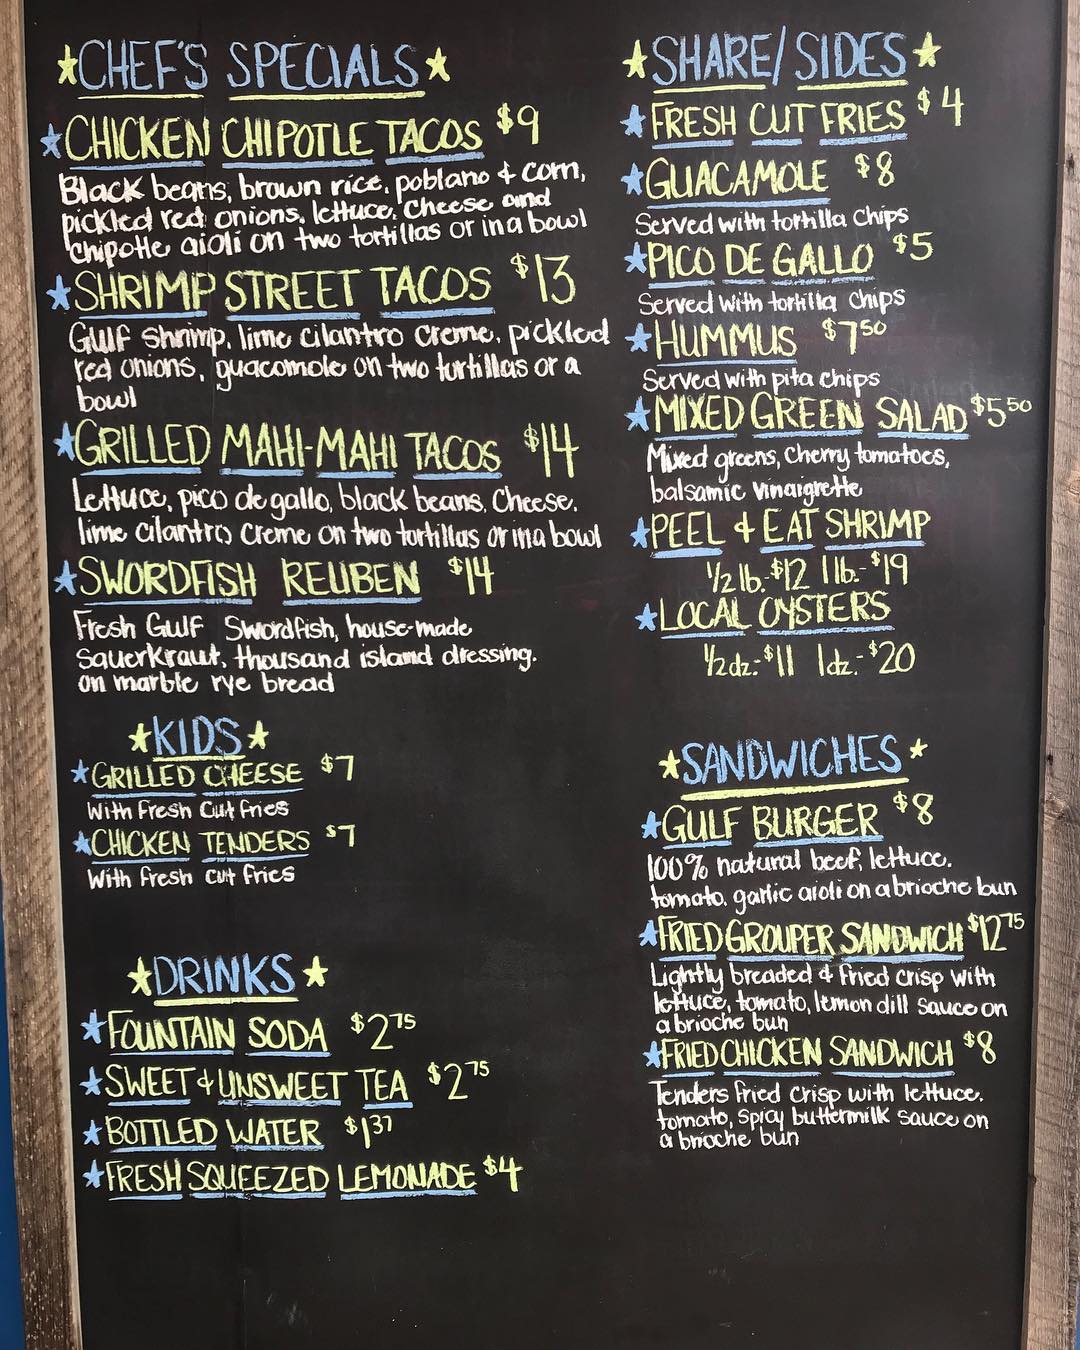 CHEF'S SPECIALS
CHICKEN CHIPOTLE TACOS $9
Black beans, brown rice, poblano & corn,
pickled red onions, lettuce, cheese and
chipotle aioli on two tortillas or in a bowl
SHRIMP STREET TACOS $13
Gulf shrimp, lime cilantro creme, pickled
red onions, guacamole on two tortillas or a
bowl
GRILLED MAHI-MAHI TACOS $14
Lettuce, pico de gallo, black beans, cheese,
lime cilantro creme on two tortillas or in a bowl
SWORDFISH REUBEN $14
Fresh Gulf Swordfish, house-made
sauerkraut, thousand island dressing.
on marble rye bread
KIDS
GRILLED CHEESE $7
With fresh cut fries
CHICKEN TENDERS $7
With fresh cut fries
DRINKS
FOUNTAIN SODA $2 75
SWEET & UNSWEET TEA $2 75
BOTTLED WATER $1 37
FRESH SQUEEZED LEMONADE $4
SHARE/SIDES
FRESH CUT FRIES $4
GUACAMOLE $8
Served with tortilla chips
PICO DE GALLO $5
Served with tortilla chips
HUMMUS $7 50
Served with pita chips
MIXED GREEN SALAD $5 50
Mixed greens, cherry tomatoes,
balsamic vinaigrette
PEEL & EAT SHRIMP
1/2 lb.-$12 1 lb.-$19
LOCAL OYSTERS
1/2 dz.-$11 1 dz.-$20
SANDWICHES
GULF BURGER $8
100% natural beef, lettuce,
tomato, garlic aioli on a brioche bun
FRIED GROUPER SANDWICH $12 75
Lightly breaded & fried crisp with
lettuce, tomato, lemon dill sauce on
a brioche bun
FRIED CHICKEN SANDWICH $8
Tenders fried crisp with lettuce,
tomato, spicy buttermilk sauce on
a brioche bun